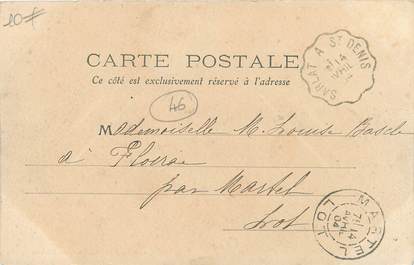 10f
CARTE POSTALE
Ce côté est exclusivement réservé à l'adresse
46
SARLAT A ST DENIS
14
AVRIL
Mademoiselle M. Louise
à Floirac
par Martel
Lot
MARTEL
7 14
AVRIL
04
LOT